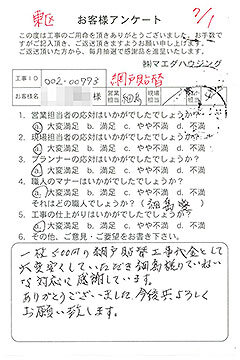 東区
お客様アンケート
2/1
この度は工事のご用命を頂きありがとうございました。お手数で
すがご記入頂き、ご返送頂きますようお願い申し上げます。
ご返送頂いた方から、毎月抽選で感謝品を進呈いたします。
㈱マエダハウジング
工事ID 002-00793 網戸貼替
お客様名 様 営業担当 細島 現場担当
1. 営業担当者の応対はいかがでしたでしょうか?
a.大変満足 b.満足 c.やや不満 d.不満
2. 現場担当者の応対はいかがでしたでしょうか?
a.大変満足 b.満足 c.やや不満 d.不満
3. プランナーの応対はいかがでしたでしょうか?
a.大変満足 b.満足 c.やや不満 d.不満
4. 職人のマナーはいかがでしたでしょうか?
a.大変満足 b.満足 c.やや不満 d.不満
それはどの職人でしょうか? (細島様)
5. 工事の仕上がりはいかがでしたでしょうか?
a.大変満足 b.満足 c.やや不満 d.不満
6. その他、ご意見・ご要望をお書き下さい。
一枚500円の網戸貼替工事代金として
大変安くしていただき細島様のていねい
な対応に感謝しています。
ありがとうございました 今後共よろしく
お願い致します。